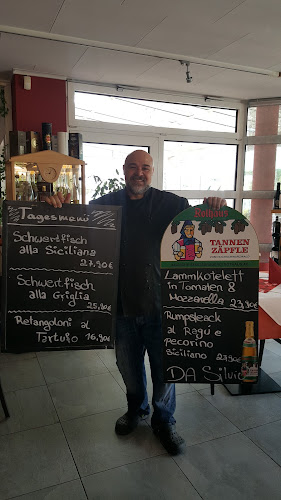 Tagesmenü
Schwertfisch
alla Siciliana
27,90€
Schwertfisch
alla Griglia
25,90€
Retangoloni al
Tartufo 16,90€
Rothaus
TANNEN
ZÄPFLE
Lammkotelett
in Tomaten &
Mozzarella 23,90€
Rumpsteack
al Ragú e
pecorino
Siciliano 27,90€
DA Silvio